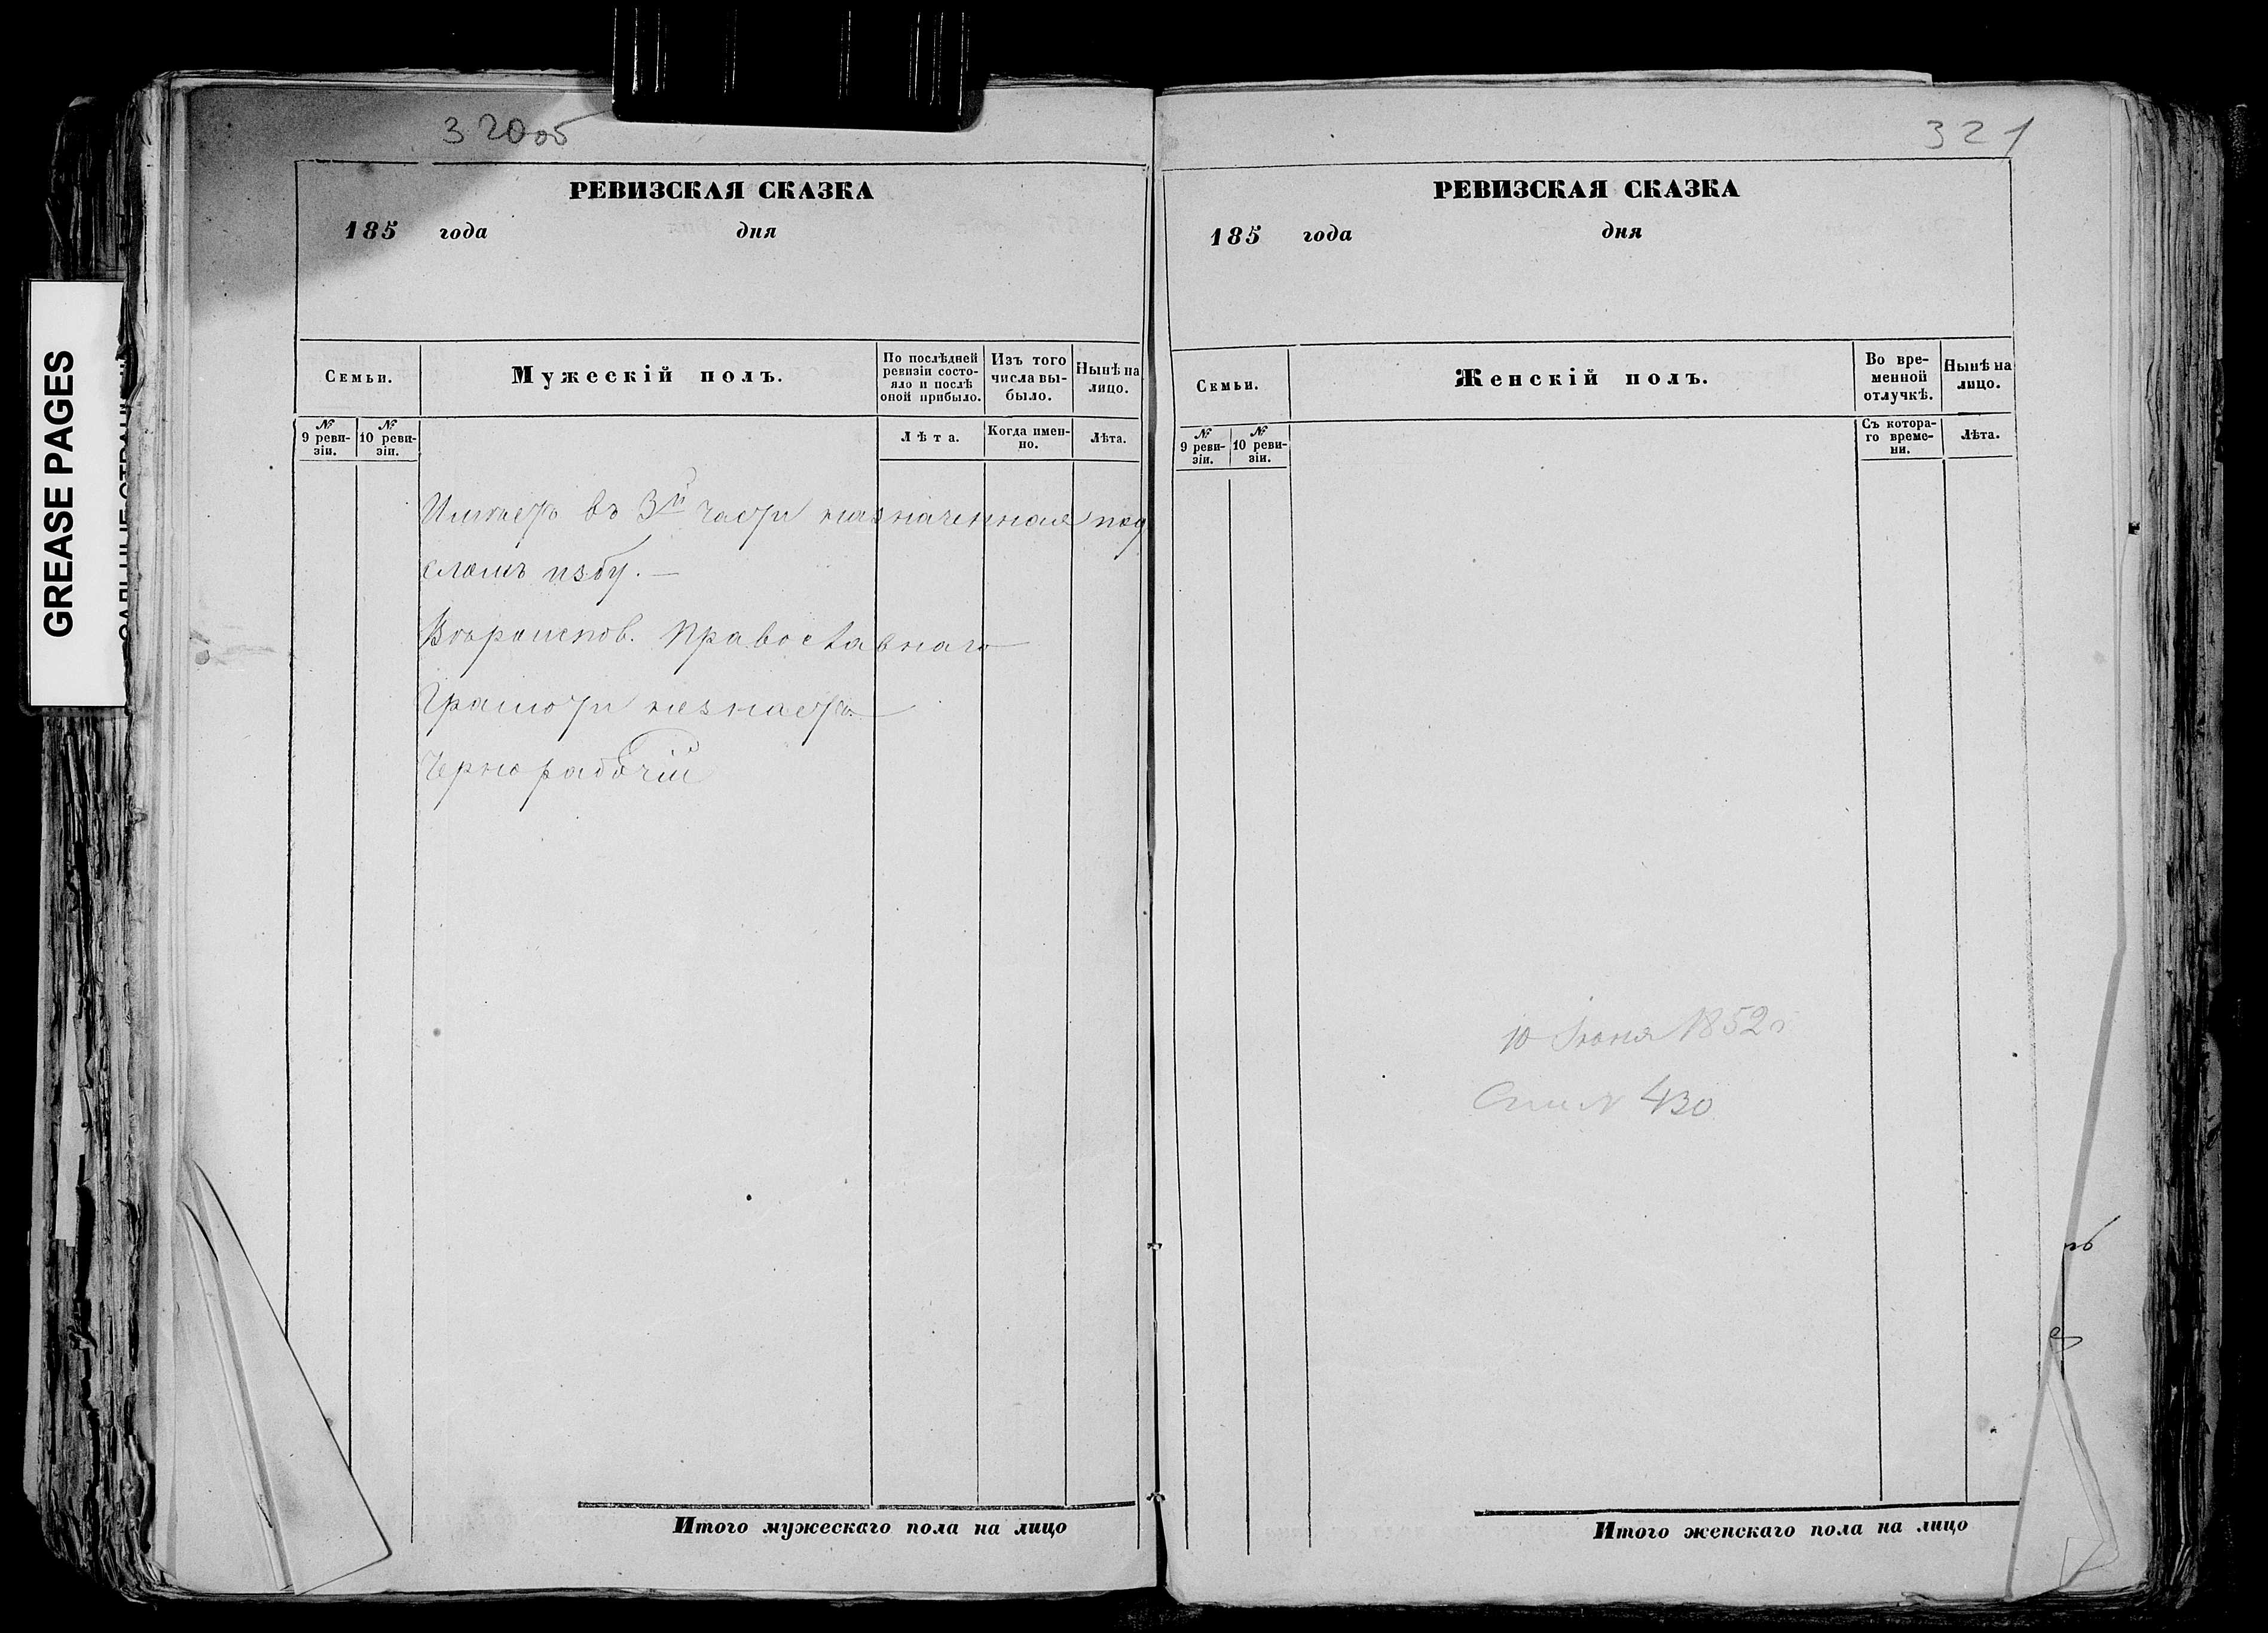 320 об
РЕВИЗСКАЯ СКАЗКА
185 года дня
Семьи.
Мужескій полъ.
По послѣдней ревизіи состояло и послѣ оной прибыло.
Изъ того числа выбыло.
Нынѣ на лицо.
№ 9 ревизіи.
№ 10 ревизіи.
Лѣта.
Когда именно.
Лѣта.
Имѣетъ въ 3й части назначенная под
сломъ избу. —
Вѣроисков. Православнаго
Грамоти незнаетъ
Чернорабочій
Итого мужескаго пола на лицо
321
РЕВИЗСКАЯ СКАЗКА
185 года дня
Семьи.
Женскій полъ.
Во временной отлучкѣ.
Нынѣ на лицо.
№ 9 ревизіи.
№ 10 ревизіи.
Съ котораго времени.
Лѣта.
10 Іюня 1852 г
№ 430
Итого женскаго пола на лицо
GREASE PAGES